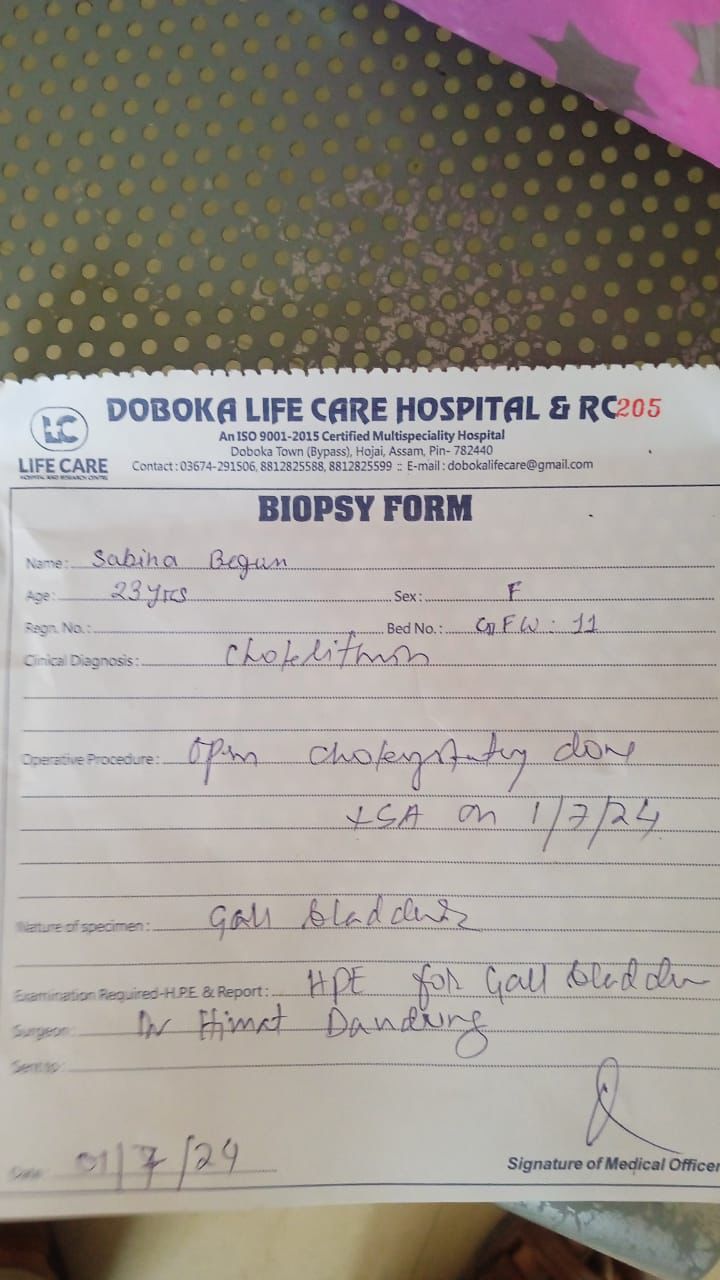 DOBOKA LIFE CARE HOSPITAL & RC 205
LC
LIFE CARE
HOSPITAL AND RESEARCH CENTRE
An ISO 9001-2015 Certified Multispeciality Hospital
Doboka Town (Bypass), Hojai, Assam, Pin- 782440
Contact : 03674-291506, 8812825588, 8812825599 :: E-mail : dobokalifecare@gmail.com
BIOPSY FORM
Name: Sabina Begum
Age: 23 yrs Sex: F
Regn. No.: Bed No.: GFW : 11
Clinical Diagnosis:
Operative Procedure: Open done
SA on 1/7/24
Nature of specimen: Gall bladder
Examination Required-H.P.E. & Report: HPE for Gall bladder
Surgeon: Dr Himat
Sent to:
Date: 01/7/24
Signature of Medical Officer